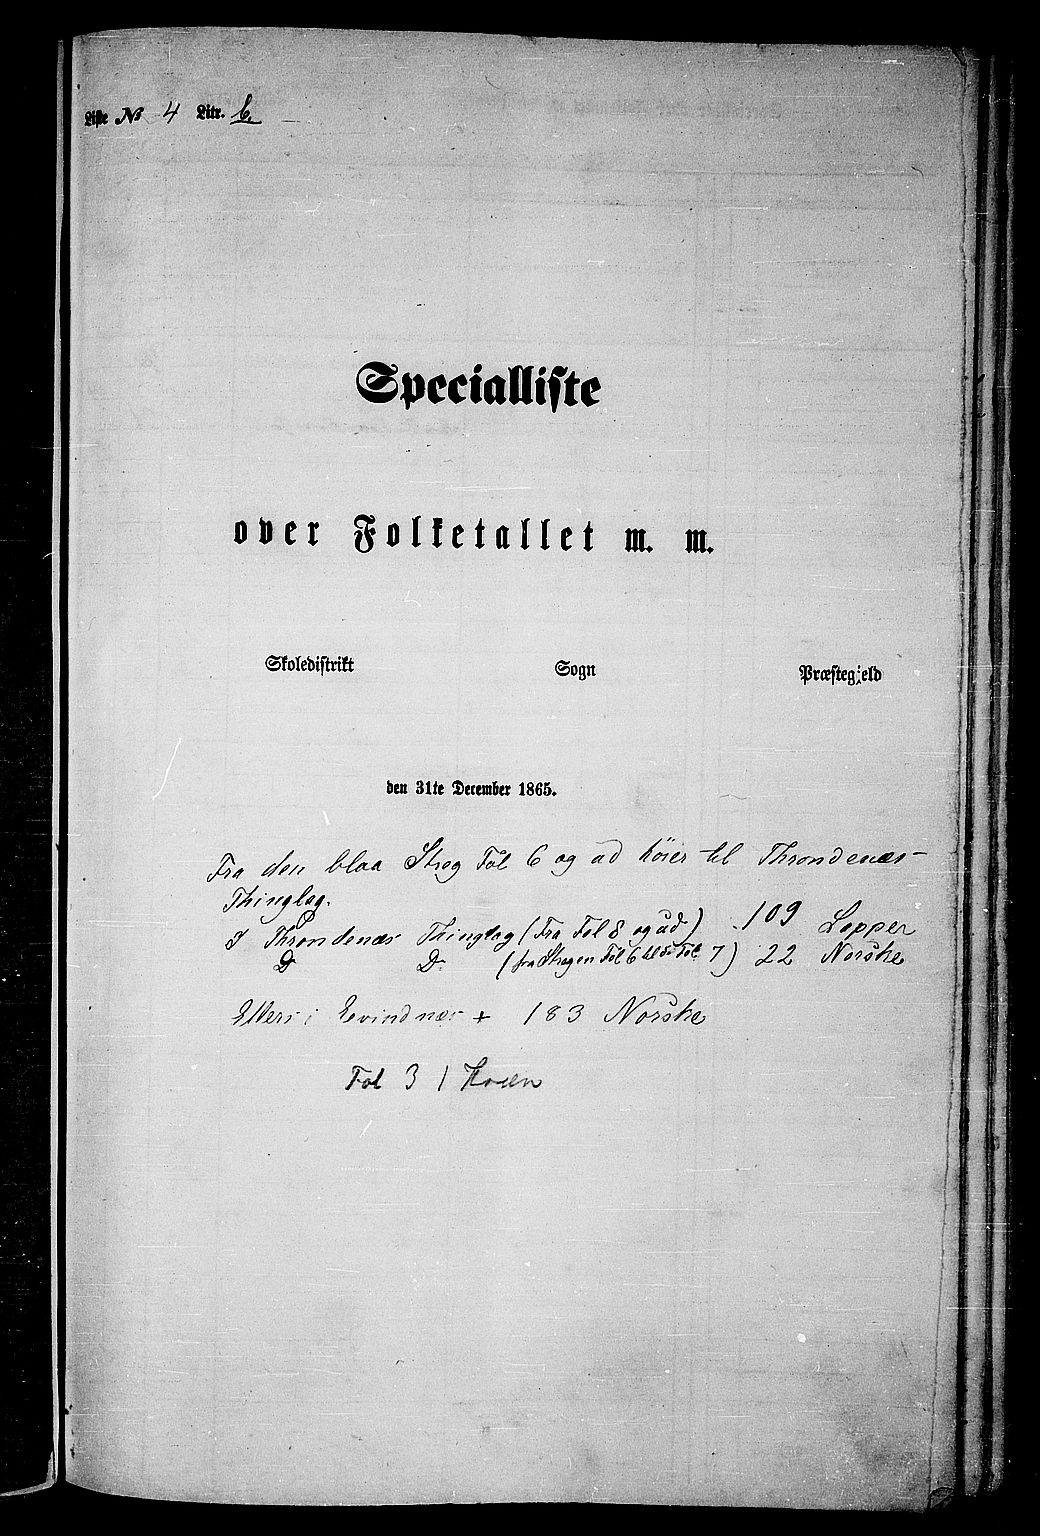 Liste № 4 Litr. b.
Specialliste
over Folketallet m. m.
Skoledistrikt Sogn Præstegjeld
den 31te December 1865.
Fra den blaa Streg Fol 6 og ud hører til Throndenæs
Thinglag.
I Throndenæs Thinglag (Fra Fol 8 og ud) 109 Lapper
D° D° (fra Stregen Fol 6 til Fol 7) 22 Norske
Ellers i Evindnæs 183 Norske
Fol 3 1 Kvæn